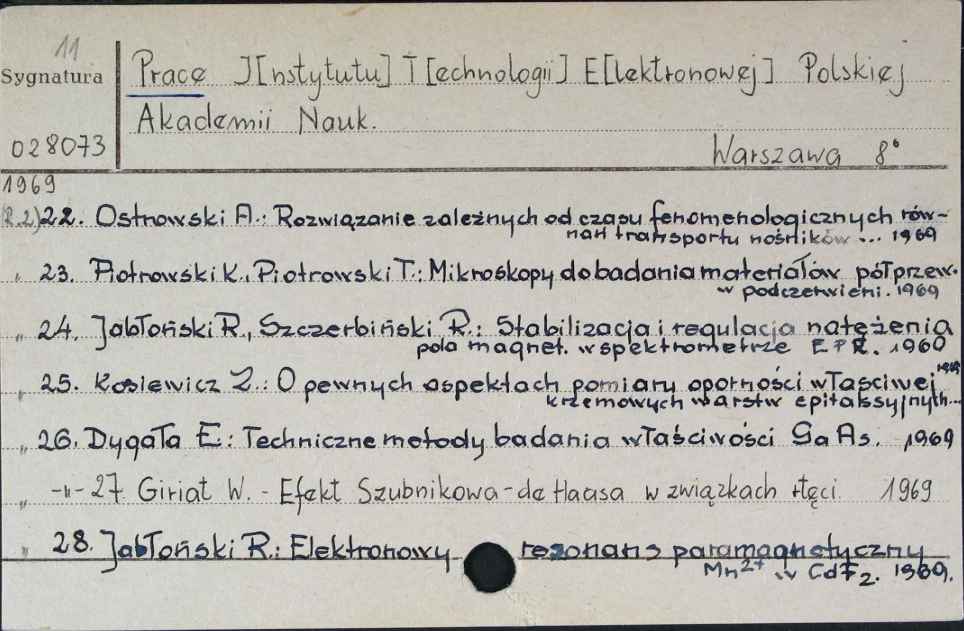 11
Sygnatura
028073
Prace I[nstytutu] T[echnologii] E[lektronowej] Polskiej
Akademii Nauk.
Warszawa 8°
1969
(R.2) 22. Ostrowski A.: Rozwiązanie zależnych od czasu fenomenologicznych rów-
nań transportu nośników ... 1969
" 23. Piotrowski K., Piotrowski T.: Mikroskopy do badania materiałów półprzew.
w podczerwieni. 1969
" 24. Jabłoński R., Szczerbiński R.: Stabilizacja i regulacja natężenia
pola magnet. w spektrometrze EPR. 1969
" 25. Kosiewicz Z.: O pewnych aspektach pomiaru oporności właściwej
krzemowych warstw epitaksyjnych... 1969
" 26. Dygała E.: Techniczne metody badania właściwości GaAs. 1969
" -"- 27. Giriat W. - Efekt Szubnikowa - de Haasa w związkach rtęci 1969
" 28. Jabłoński R.: Elektronowy rezonans paramagnetyczny
Mn2+ w CdF2. 1969.